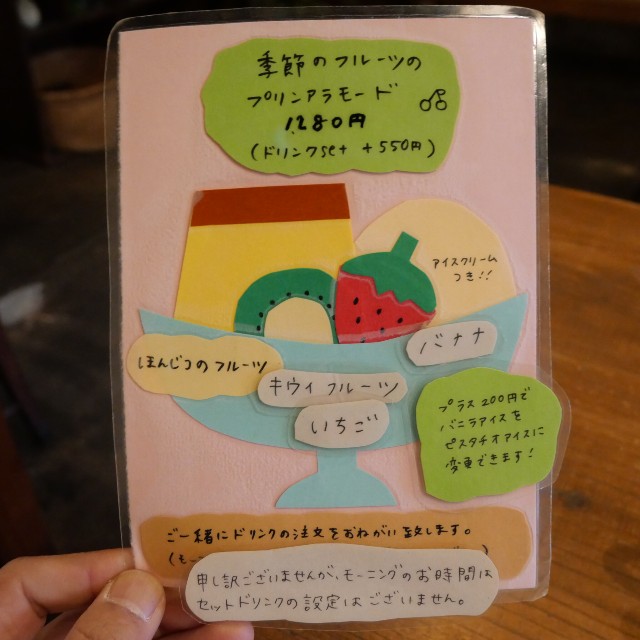 季節のフルーツの
プリンアラモード
1,280円
(ドリンクset +550円)
アイスクリーム
つき!!
バナナ
ほんじつのフルーツ
キウイフルーツ
いちご
プラス200円で
バニラアイスを
ピスタチオアイスに
変更できます!
ご一緒にドリンクの注文をおねがい致します。
申し訳ございませんが、モーニングのお時間は
セットドリンクの設定はございません。